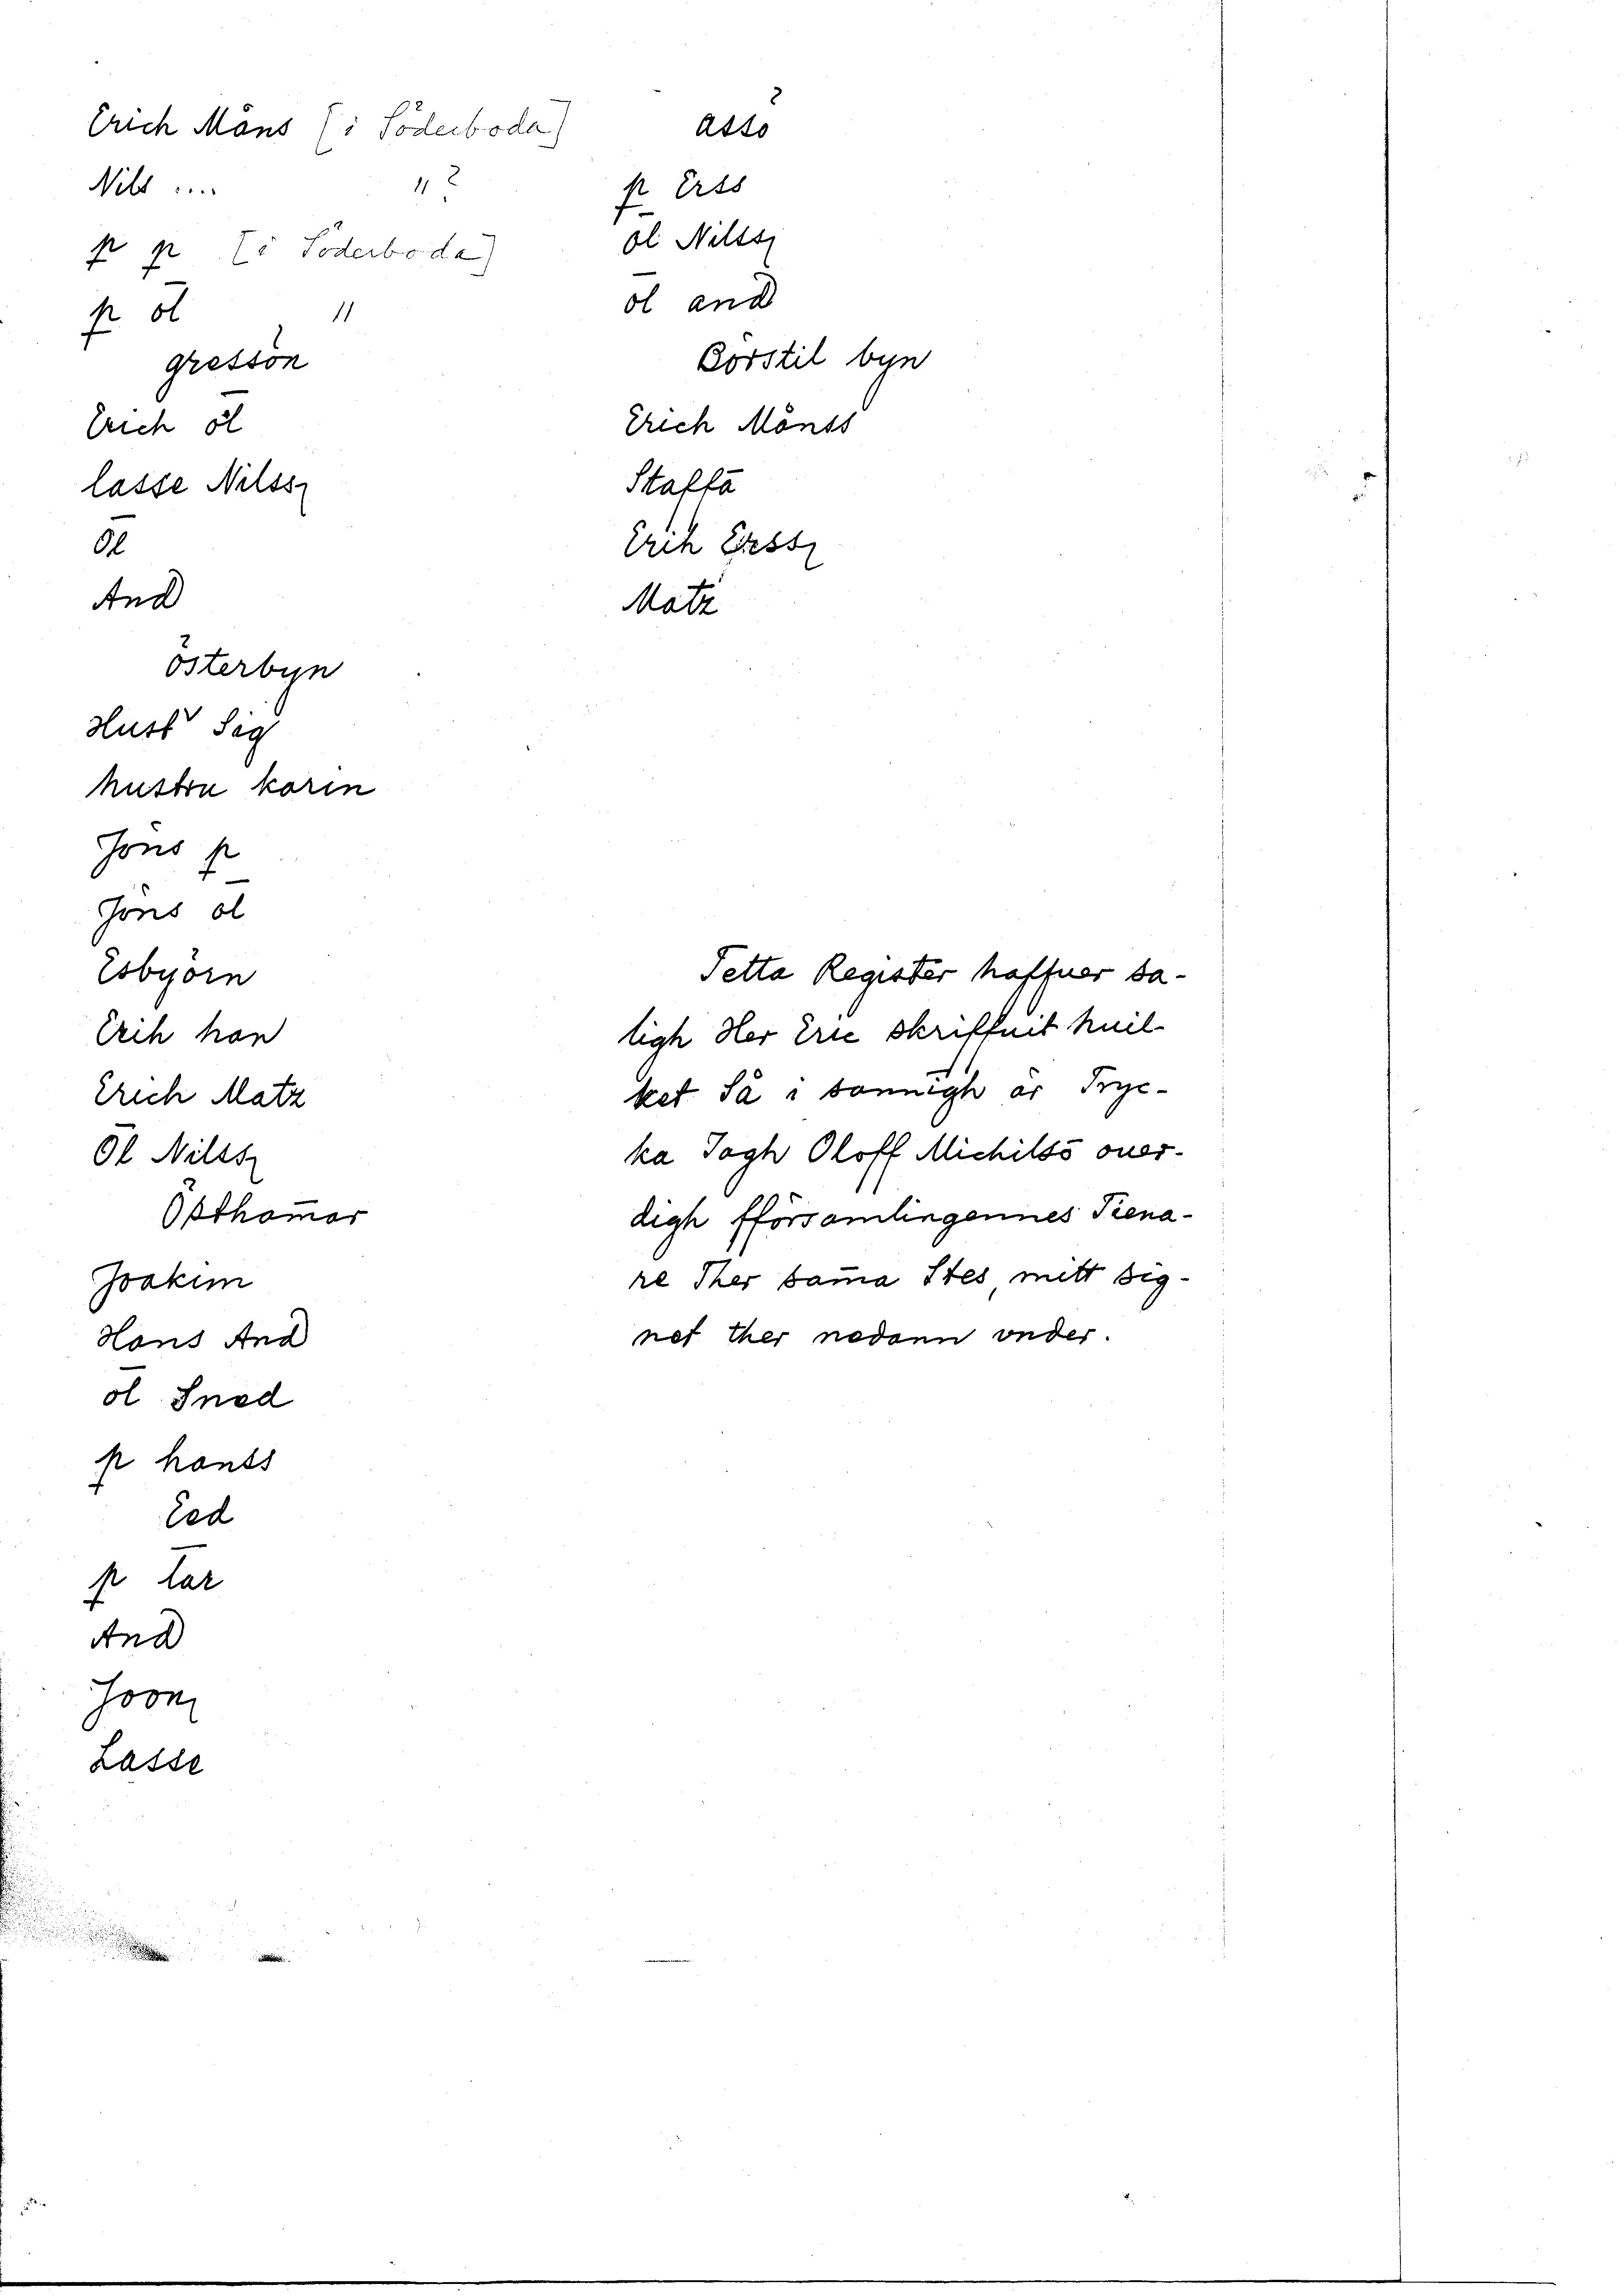 Erich Måns [i Söderboda]
Nils .... " ?
p p [i Söderboda]
p ol "
gresson
Erich ol
lasse Nilss
Ol
And
österbyn
Hust Sig
hustru karin
Jöns p
Jöns ol
Esbyörn
Erih han
Erich Matz
Ol Nilss
Östhamar
Joakim
Hans And
ol Sned
p hanss
Eed
p lar
And
Joon
Lasse
assö
p Erss
ol Nilss
ol and
Börstil byn
Erich Månss
Staffā
Erih Erss
Matz
Tetta Register haffuer sa-
ligh Her Eric skriffuit huil-
ket Så i sannigh är Tryc-
ka Jagh Oloff Michilsō ouer-
digh fförsamlingennes Tiena-
re Ther sam̄a Stes, mitt sig-
net ther nedann under.